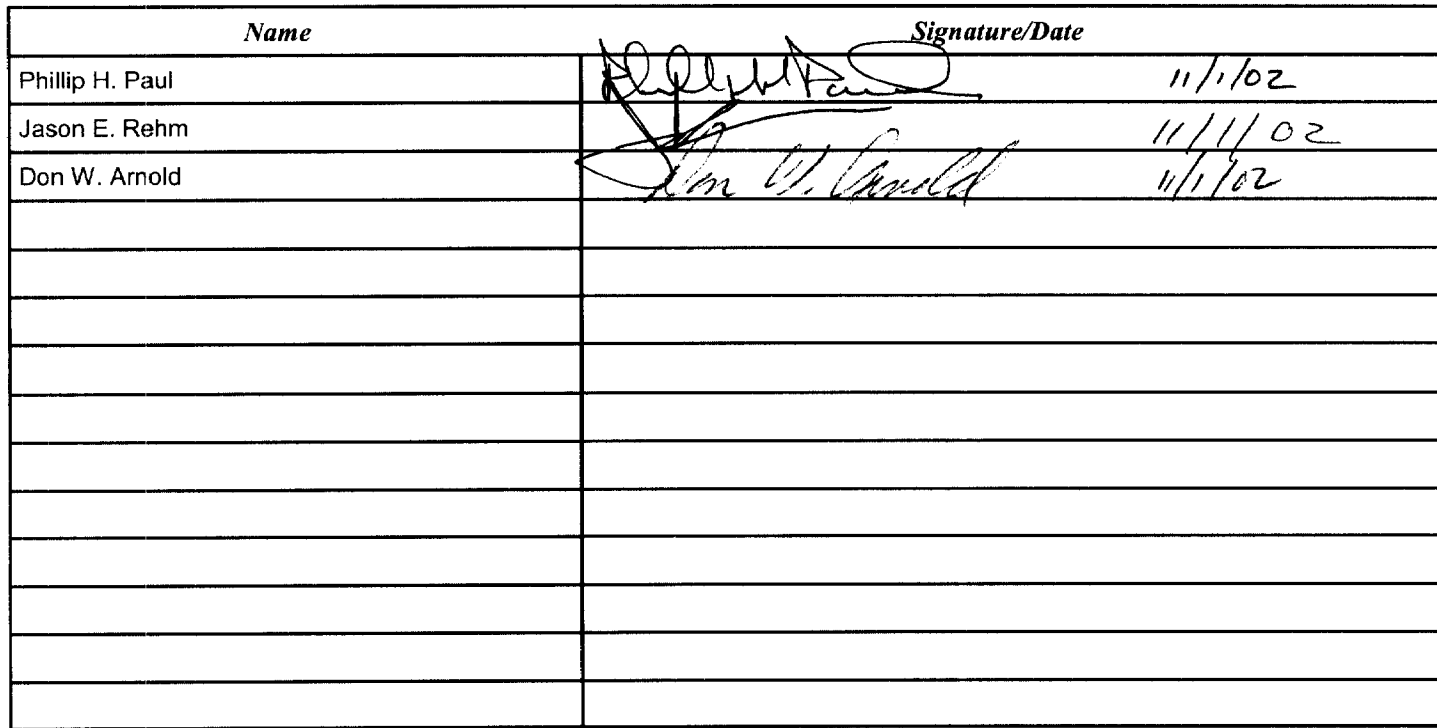 Name Signature/Date
Phillip H. Paul Phillip H. Paul 11/1/02
Jason E. Rehm 11/1/02
Don W. Arnold Don W. Arnold 11/1/02